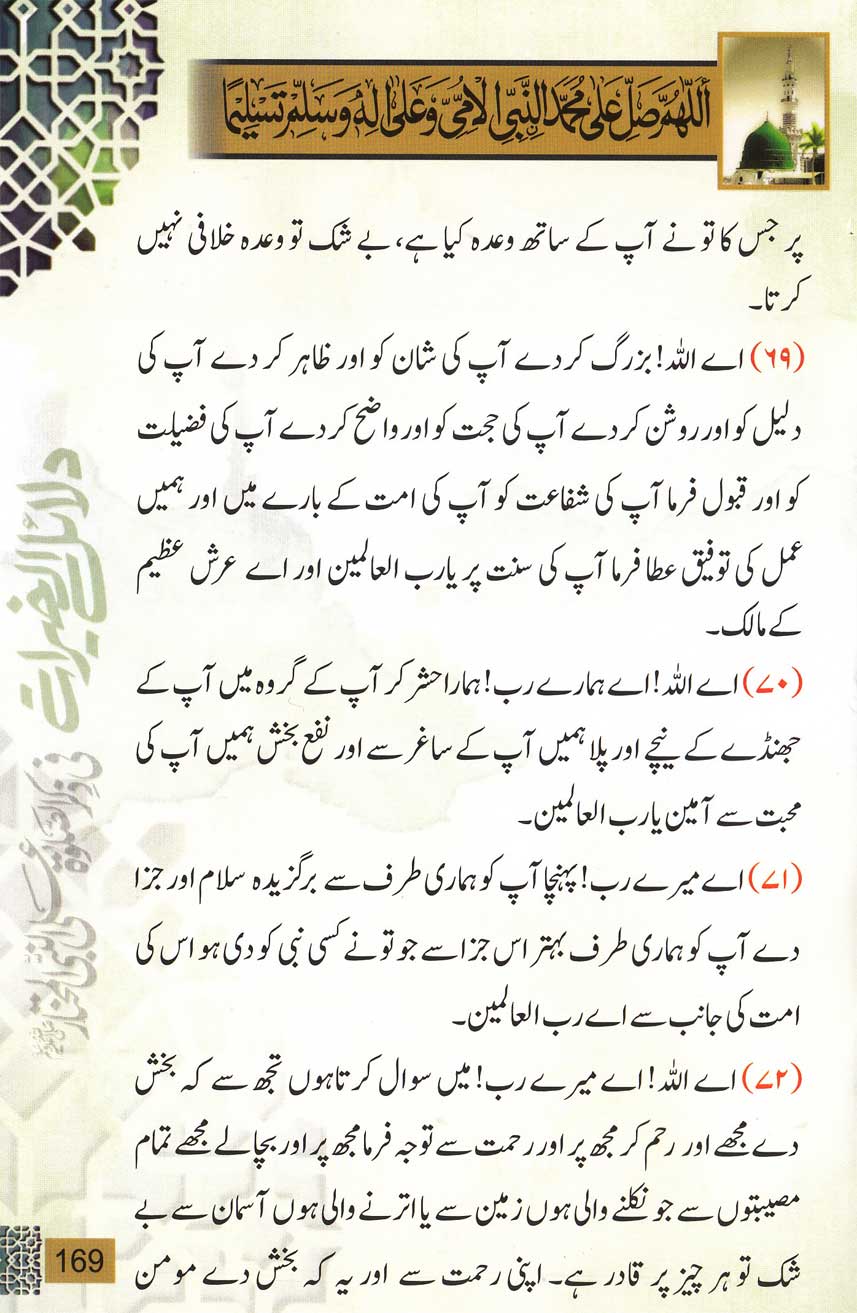 أَللّٰهُمَّ صَلِّ عَلٰى مُحَمَّدٍ النَّبِيِّ الْاُمِّيِّ وَعَلٰى اٰلِهٖ وَسَلِّمْ تَسْلِيْمًا
پر جس کا تو نے آپ کے ساتھ وعدہ کیا ہے، بے شک تو وعدہ خلافی نہیں
کرتا۔
(۶۹) اے اللہ! بزرگ کر دے آپ کی شان کو اور ظاہر کر دے آپ کی
دلیل کو اور روشن کر دے آپ کی حجت کو اور واضح کر دے آپ کی فضیلت
کو اور قبول فرما آپ کی شفاعت کو آپ کی امت کے بارے میں اور ہمیں
عمل کی توفیق عطا فرما آپ کی سنت پر یا رب العالمین اور اے عرش عظیم
کے مالک۔
(۷۰) اے اللہ! اے ہمارے رب! ہمارا حشر کر آپ کے گروہ میں آپ کے
جھنڈے کے نیچے اور پلا ہمیں آپ کے ساغر سے اور نفع بخش ہمیں آپ کی
محبت سے آمین یا رب العالمین۔
(۷۱) اے میرے رب! پہنچا آپ کو ہماری طرف سے برگزیدہ سلام اور جزا
دے آپ کو ہماری طرف بہتر اس جزا سے جو تو نے کسی نبی کو دی ہو اس کی
امت کی جانب سے اے رب العالمین۔
(۷۲) اے اللہ! اے میرے رب! میں سوال کرتا ہوں تجھ سے کہ بخش
دے مجھے اور رحم کر مجھ پر اور رحمت سے توجہ فرما مجھ پر اور بچا لے مجھے تمام
مصیبتوں سے جو نکلنے والی ہوں زمین سے یا اترنے والی ہوں آسمان سے بے
شک تو ہر چیز پر قادر ہے۔ اپنی رحمت سے اور یہ کہ بخش دے مومن
دلائل الخیرات
فی ذکر الصلوٰۃ علی النبی المختار
169